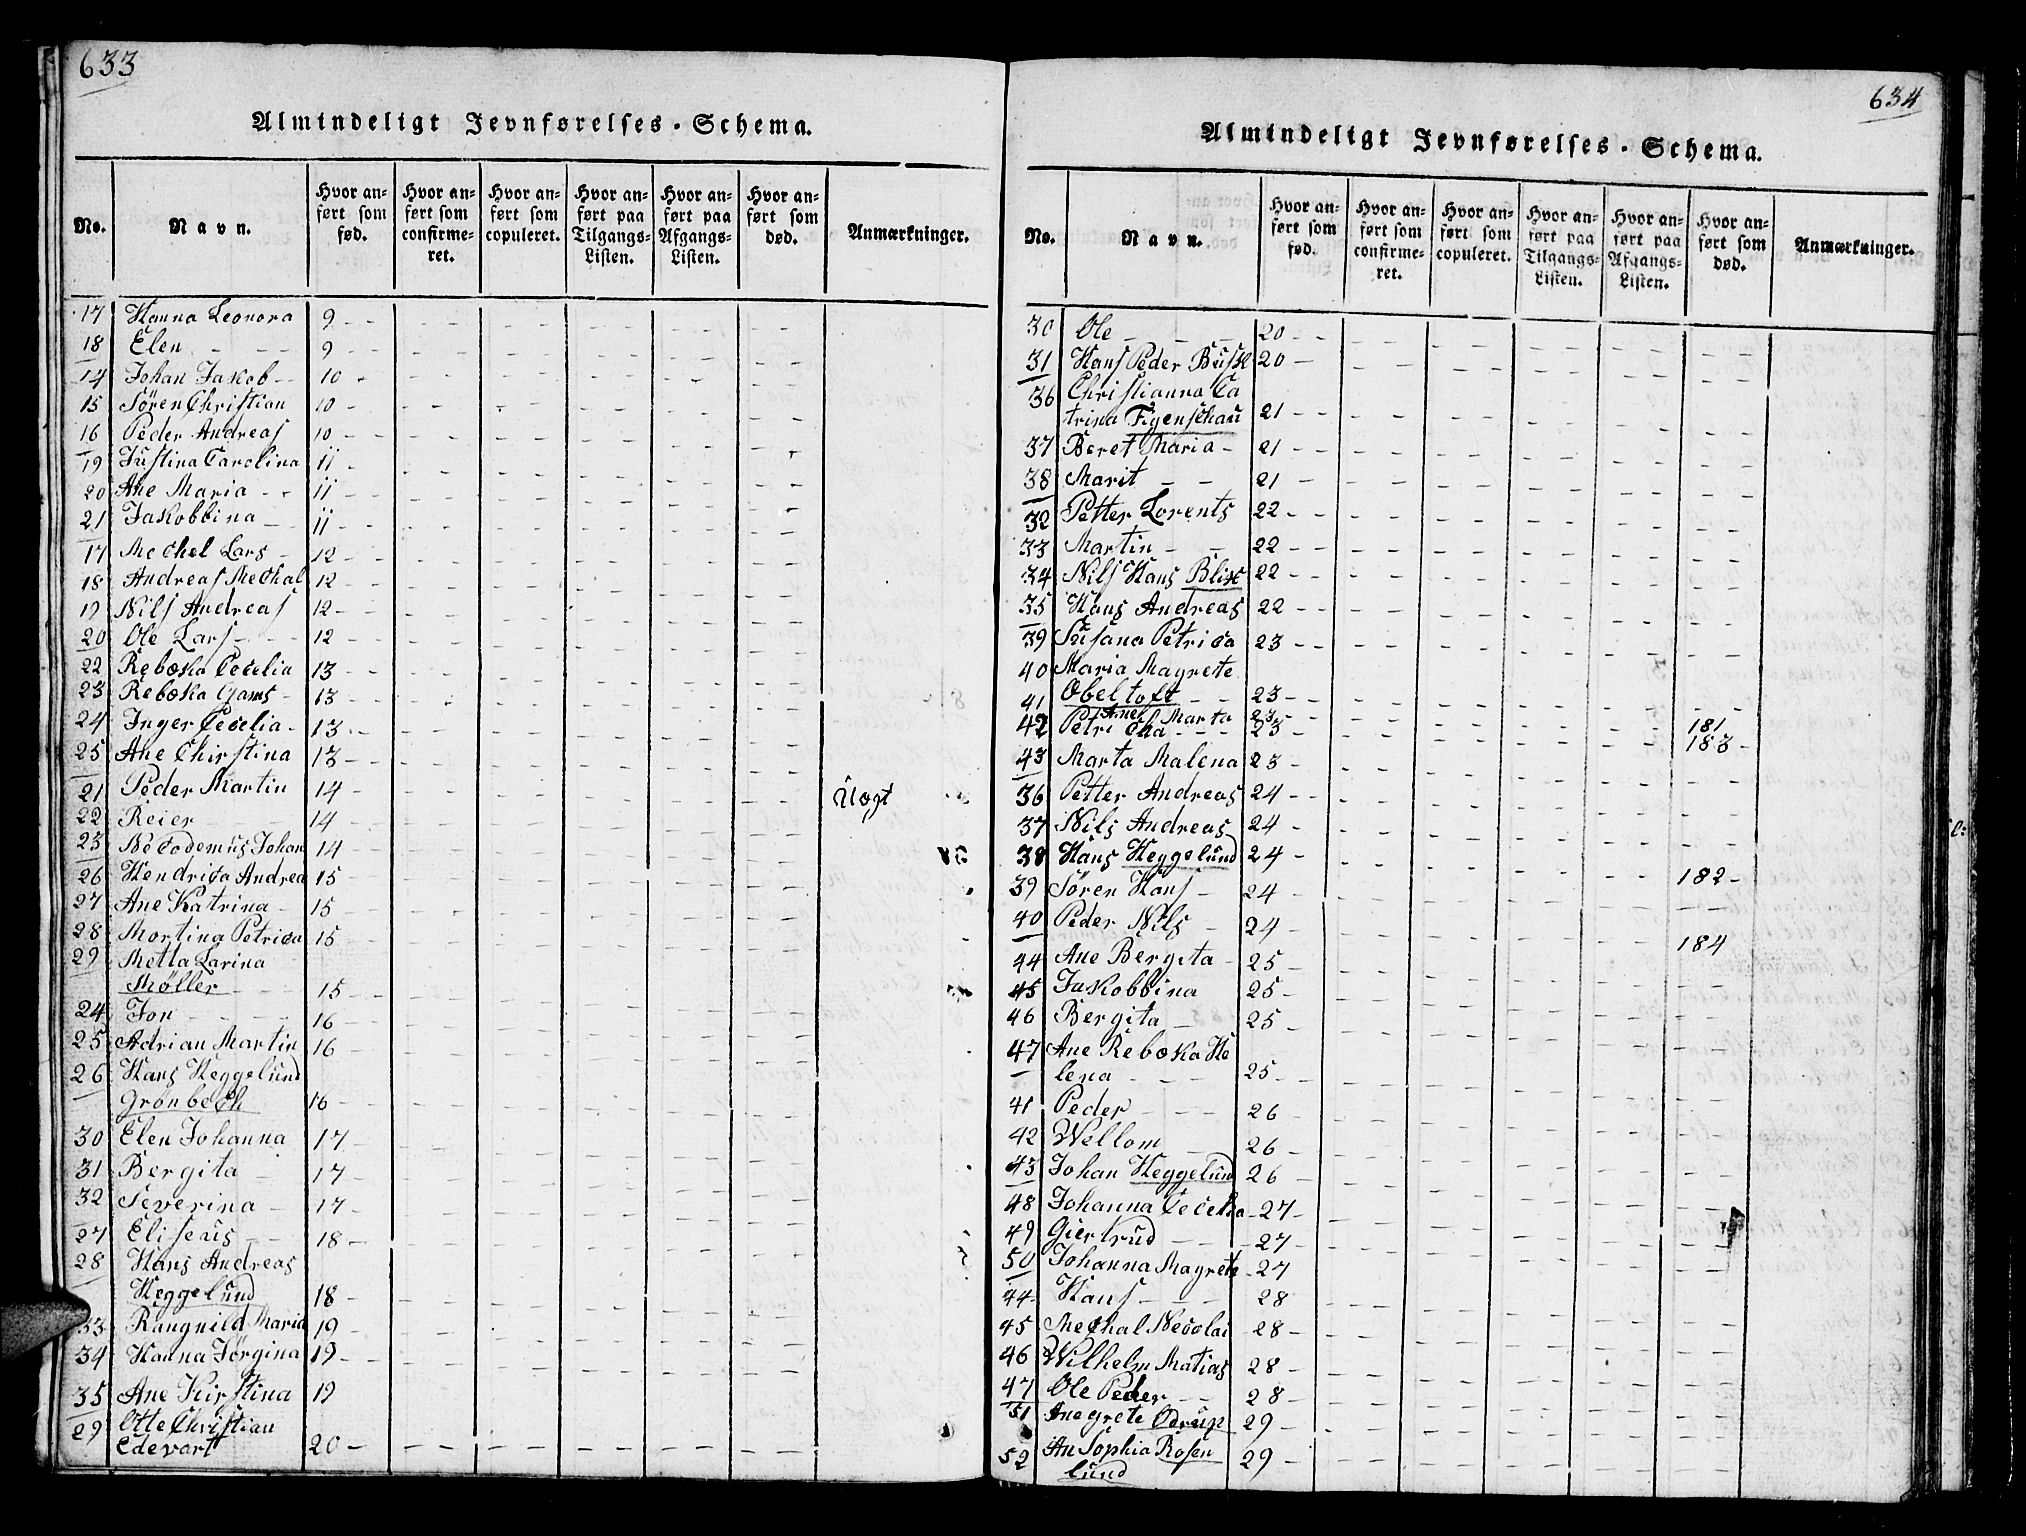 633
Almindeligt Jevnførelses-Schema.
No. Navn. Hvor anført som fød. Hvor anført som confirmeret. Hvor anført som copuleret. Hvor anført paa Tilgangs-Listen. Hvor anført paa Afgangs-Listen. Hvor anført som død. Anmærkninger.
17 Hanna Leonora 9
18 Elen 9
14 Johan Jakob 10
15 Sören Christian 10
16 Peder Andreas 10
19 Justina Carolina 11
20 Ane Maria 11
21 Jakobbina 11
17 Mechel Lars 12
18 Andreas Mechal 12
19 Nils Andreas 12
20 Ole Lars 12
22 Rebæka Cecelia 13
23 Rebæka Gams 13
24 Inger Cecelia 13
25 Ane Chirstina 13
21 Peder Martin 14 Uægt
22 Reier 14
23 Necodemus Johan 14
26 Hendrica Andrea 15
27 Ane Katrina 15
28 Mortina Petrica 15
29 Metta Larina
Møller 15
24 Jon 16
25 Adrian Martin 16
26 Hans Heggelund
Grønbech 16
30 Elen Johanna 17
31 Bergita 17
32 Severina 17
27 Eliseus 18
28 Hans Andreas
Heggelund 18
33 Rangnild Maria 19
34 Hanna Jörgina 19
35 Ane Kirstina 19
29 Otte Christian
Edevart 20
634
Almindeligt Jevnførelses-Schema.
No. Navn. Hvor anført som fød. Hvor anført som confirmeret. Hvor anført som copuleret. Hvor anført paa Tilgangs-Listen. Hvor anført paa Afgangs-Listen. Hvor anført som død. Anmærkninger.
30 Ole 20
31 Hans Peder 20
36 Christianna Ca
trina Figenschau 21
37 Beret Maria 21
38 Marit 21
32 Petter Lorents 22
33 Martin 22
34 Nils Hans Blix 22
35 Hans Andreas 22
39 Susana Petrica 23
40 Maria Magrete
41 Obeltoft 23
Ane Marta 23 181
42 Petricha 23 183
43 Marta Malena 23
36 Petter Andreas 24
37 Nils Andreas 24
38 Hans Heggelund 24
39 Søren Hans 24 182
40 Peder Nils 24
44 Ane Bergita 25 184
45 Jakobbina 25
46 Bergita 25
47 Ane Rebæka He
lena 25
41 Peder 26
42 Wellom 26
43 Johan Heggelund 26
48 Johanna Cecelia 27
49 Giertrud 27
50 Johanna Magrete 27
44 Hans 28
45 Mechal Necolai 28
46 Wilhelm Matias 28
47 Ole Peder 28
51 Anegrete 29
52 An Sophia Rosen
lund 29